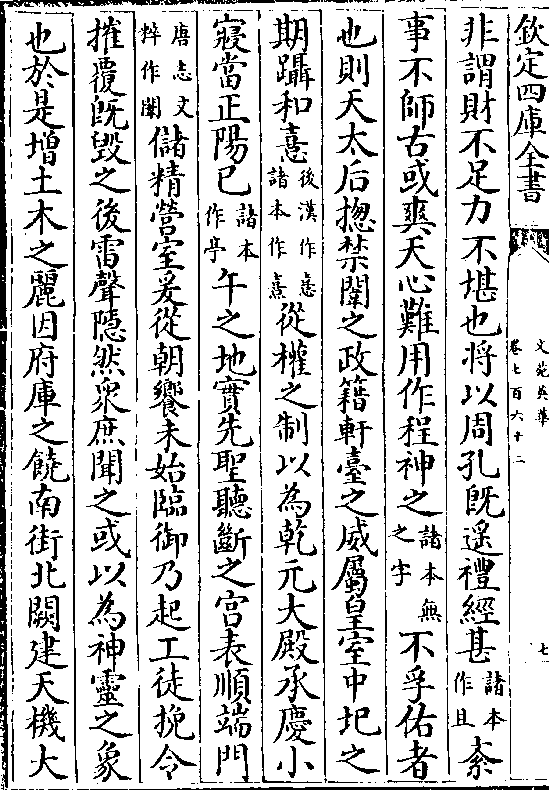 欽定四庫全書
文苑英華
卷七百六十二
七
非謂財不足力不堪也将以周孔旣遥禮經甚諸本作且紊
事不師古或爽天心難用作程神之諸本無之字不孚佑者
也則天太后揔禁闈之政籍軒臺之威屬皇室中圯之
期躡和憙後漢作憙諸本作熹從權之制以為乾元大殿承慶小
寢當正陽已諸本作亭午之地實先聖聽斷之宫表順端門
唐志文粹作闈儲精營室爰從朝饗未始臨御乃起工徒挽令
摧覆旣毀之後雷聲隱然衆庶聞之或以為神靈之象
也於是增土木之麗因府庫之饒南街北闕建天機大